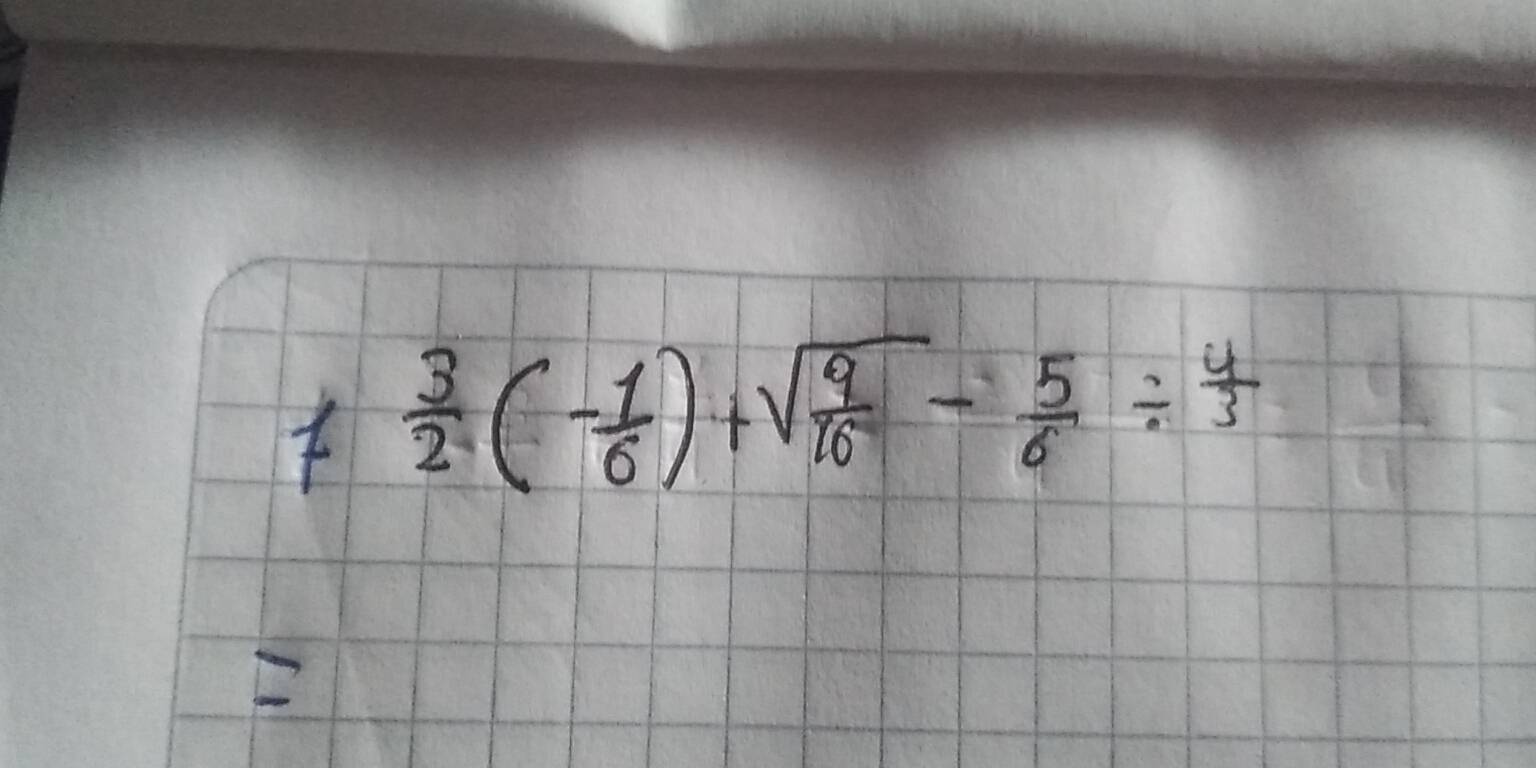 1 3/2 (-1/6) + √9/16 - 5/6 ÷ 4/3
=